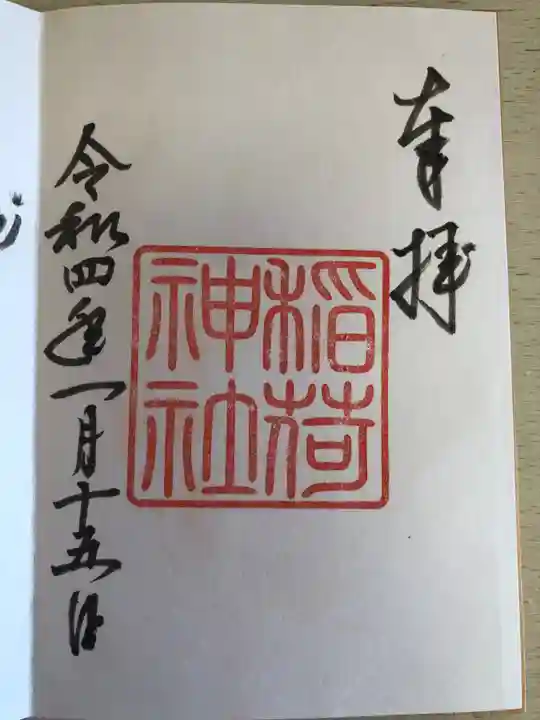 奉拝
稲荷
神社
令和四年一月十五日